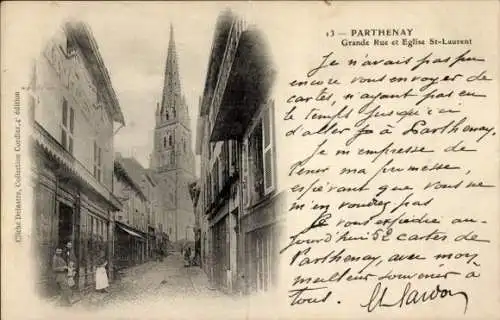 13 - PARTHENAY
Grande Rue et Eglise St-Laurent
Je n'avais pas pu
encore vous envoyer de
cartes, n'ayant pas eu
le temps jusqu'ici
d'aller à Parthenay.
Je m'empresse de
tenir ma promesse,
espérant que vous ne
m'en voudrez pas
Je vous expédie au-
jourd'hui 52 cartes de
Parthenay, avec mon
meilleur souvenir à
tous,
Sardon
Cliché Delaatre, Collection Cordier, 4e édition